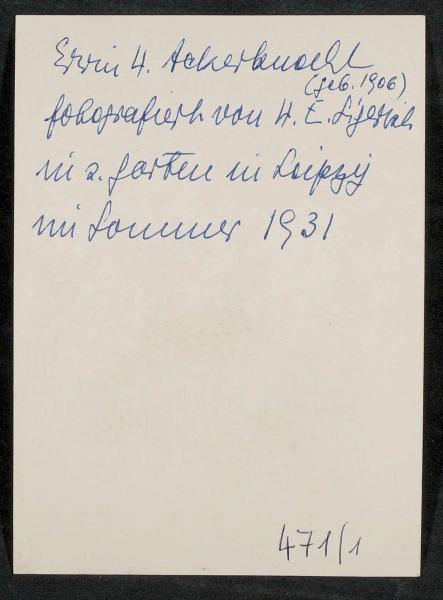 Erwin H. Ackerknecht
(geb. 1906)
fotografiert von H. E. Sigerist
in s. Garten in Leipzig
im Sommer 1931
471/1